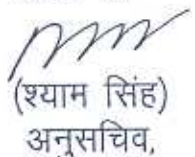 (श्याम सिंह)
अनुसचिव,